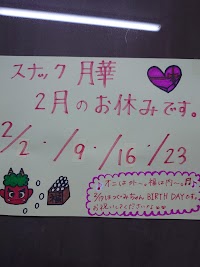 スナック 月華
2月のお休みです。
2/2・/9・/16・/23
オニは外〜。福は内〜。
2/13はつぐみちゃん BIRTH DAYです。
お祝いしてくださいね